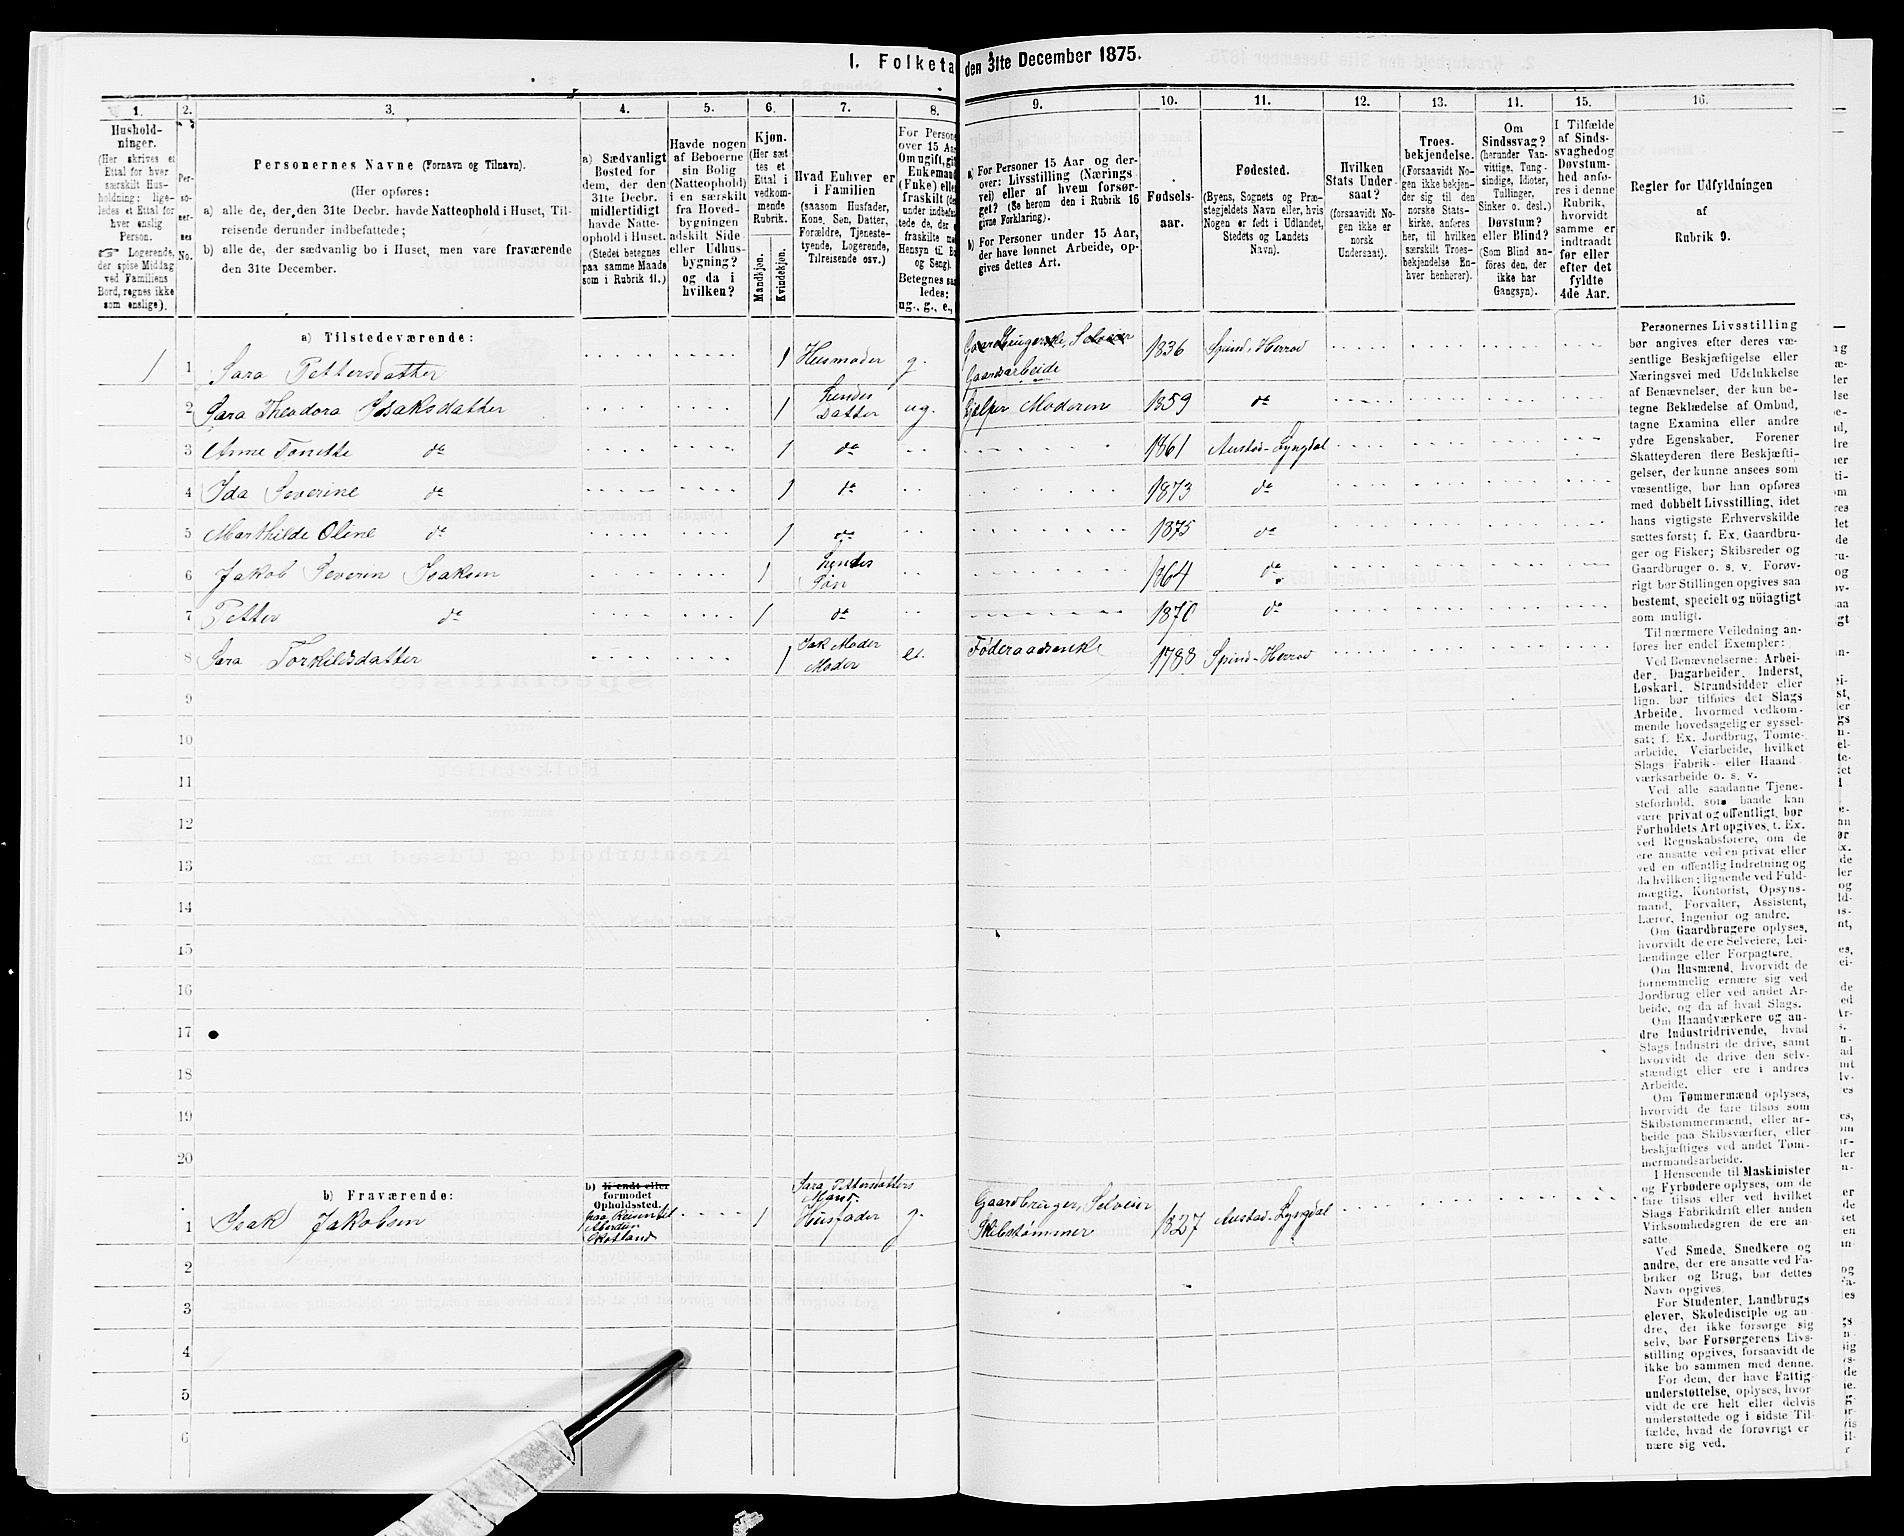 I. Folketa
den 31te December 1875.
1.
Hushold-
ninger.
(Her skrives et
Ettal for hver
særskilt Hus-
holdning; lige-
ledes et Ettal for
hver enslig
Person.
☞ Logerende,
der spise Middag
ved Familiens
Bord, regnes ikke
som enslige).
2.
Per-
so-
ner-
nes
No.
3.
Personernes Navne (Fornavn og Tilnavn).
(Her opføres:
a) alle de, der den 31te Decbr. havde Natteophold i Huset, Til-
reisende derunder indbefattede;
b) alle de, der sædvanlig bo i Huset, men vare fraværende
den 31te December.
4.
a) Sædvanligt
Bosted for
dem, der den
31te Decbr.
midlertidigt
havde Natte-
ophold i Huset.
(Stedet betegnes
paa samme Maade
som i Rubrik 11.)
5.
Havde nogen
af Beboerne
sin Bolig
(Natteophold)
i en særskilt
fra Hoved-
bygningen
adskilt Side
eller Udhus-
bygning?
og da i
hvilken?
6.
Kjøn.
(Her sæt-
tes et
Ettal i
vedkom-
mende
Rubrik.
Mandkjøn.
Kvindekjøn.
7.
Hvad Enhver er
i Familien
(saasom Husfader,
Kone, Søn, Datter,
Forældre, Tjeneste-
tyende, Logerende,
Tilreisende osv.)
8.
For Persone
over 15 Aa
Om ugift, gif
Enkemand
(Enke) elle
fraskilt (de
under indbefa
tede de, der e
fraskilte me
Hensyn til Bo
og Seng).
Betegnes saa
ledes:
ug., g., e.,
9.
a) For Personer 15 Aar og der-
over: Livsstilling (Nærings
vei) eller af hvem forsør-
get? (Se herom den i Rubrik 16
givne Forklaring).
b) For Personer under 15 Aar,
der have lønnet Arbeide, op-
gives dettes Art.
10.
Fødsels-
aar.
11.
Fødested.
(Byens, Sognets og Præ-
stegjeldets Navn eller, hvis
Nogen er født i Udlandet,
Stedets og Landets
Navn).
12.
Hvilken
Stats Under-
saat?
(forsaavidt No-
gen ikke er
norsk
Undersaat).
13.
Troes-
bekjendelse.
(Forsaavidt No-
gen ikke bekjen-
der sig til den
norske Stats-
kirke, anføres
her, til hvilken
særskilt Troes-
bekjendelse En-
hver henhører).
14.
Om
Sindssvag?
(herunder Van-
vittige, Tung-
sindige, Idioter,
Tullinger,
Sinker o. desl.)
Døvstum?
eller Blind?
(Som Blind an-
føres den, der
ikke har
Gangsyn).
15.
I Tilfælde
af Sinds-
svaghed og
Døvstum-
hed anfø-
res i denne
Rubrik,
hvorvidt
samme er
indtraadt
før eller
efter det
fyldte
4de Aar.
16.
Regler for Udfyldningen
af
Rubrik 9.
a) Tilstedeværende:
1 1 Sara Pettersdatter 1 Husmoder g. Gaardbrugerske, Selveier Gaardsarbeide 1836 Spind, Herrod
2 Sara Theodora Isaksdatter 1 hendes Datter ug. hjelper Moderen 1859 do
3 Anne Tonette do 1 do 1861 Austad-Lyngdal
4 Ida Severine do 1 do 1873 do
5 Marthilde Oline do 1 do 1875 do
6 Jakob Severin Isaksen 1 hendes Søn 1864 do
7 Petter do 1 do 1870 do
8 Sara Torkilsdatter 1 Moder e. Føderaadsenke 1788 Spind-Herrod
9
10
11
12
13
14
15
16
17
18
19
20
b) Fraværende:
b) Kjendt eller
formodet
Opholdssted.
1 Isak Jakobsen paa Reisen til Aberdeen Skotland 1 Sara Pettersdatters Mand. Husfader g. Gaardbruger, Selveier Skibstømmer 1827 Austad-Lyngdal
2
3
4
5
6
Personernes Livsstilling
bør angives efter deres væ-
sentlige Beskjæftigelse eller
Næringsvei med Udelukkelse
af Benævnelser, der kun be-
tegne Beklædelse af Ombud,
tagne Examina eller andre
ydre Egenskaber. Forener
Skatteyderen flere Beskjæfti-
gelser, der kunne ansees som
væsentlige, bør han opføres
med dobbelt Livsstilling, idet
hans vigtigste Erhvervskilde
sættes først; f. Ex. Gaardbru-
ger og Fisker; Skibsreder og
Gaardbruger o. s. v. Forøv-
rigt bør Stillingen opgives saa
bestemt, specielt og nöiagtigt
som muligt.
Til nærmere Veiledning an-
føres her endel Exempler:
Ved Benævnelserne: Arbei-
der, Dagarbeider, Inderst,
Løskarl, Strandsidder eller
lign. bør tilføies det Slags
Arbeide, hvormed vedkom-
mende hovedsagelig er syssel-
sat; f. Ex. Jordbrug, Tomte-
arbeide, Veiarbeide, hvilket
Slags Fabrik- eller Haand
værksarbeide o. s. v.
Ved alle saadanne Tjene-
steforhold, som baade kan
være privat og offentligt, bør
Forholdets Art opgives, t. Ex.
ved Regnskabsførere, om de
ere ansatte ved en privat eller
ved en offentlig Indretning og
da hvilken; lignende ved Fuld-
mægtig, Kontorist, Opsyns-
mand, Forvalter, Assistent,
Lærer, Ingeniør og andre.
Om Gaardbrugere oplyses,
hvorvidt de ere Selveiere, Lei-
lændinge eller Forpagtere.
Om Husmænd, hvorvidt de
fornemmelig ernære sig ved
Jordbrug eller ved andet Ar-
beide, og da af hvad Slags.
Om Haandværkere og an-
dre Industridrivende, hvad
Slags Industri de drive, samt
hvorvidt de drive den selv-
stændigt eller ere i andres
Arbeide.
Om Tømmermænd oplyses,
hvorvidt de fare tilsøs som
Skibstømmermænd, eller ar-
beide paa Skibsværfter, eller
beskjæftiges ved andet Tøm-
mermandsarbeide.
I Henseende til Maskinister
og Fyrbødere oplyses, om de
fare tilsøs eller ved hvilket
Slags Fabrikdrift eller anden
Virksomhedsgren de ere an-
satte.
Ved Smede, Snedkere og
andre, der ere ansatte ved Fa-
briker og Brug, bør dettes
Navn opgives.
For Studenter, Landbrugs
elever, Skoledisciple og an-
dre, der ikke forsørge sig
selv, bør Forsørgerens Livs-
stilling opgives, forsaavidt de
ikke bo sammen med denne.
For dem, der have Fattig
understøttelse, oplyses, hvor
vidt de ere helt eller delvis
understøttede og i sidste Til-
fælde, hvad de forøvrigt er
nære sig ved.